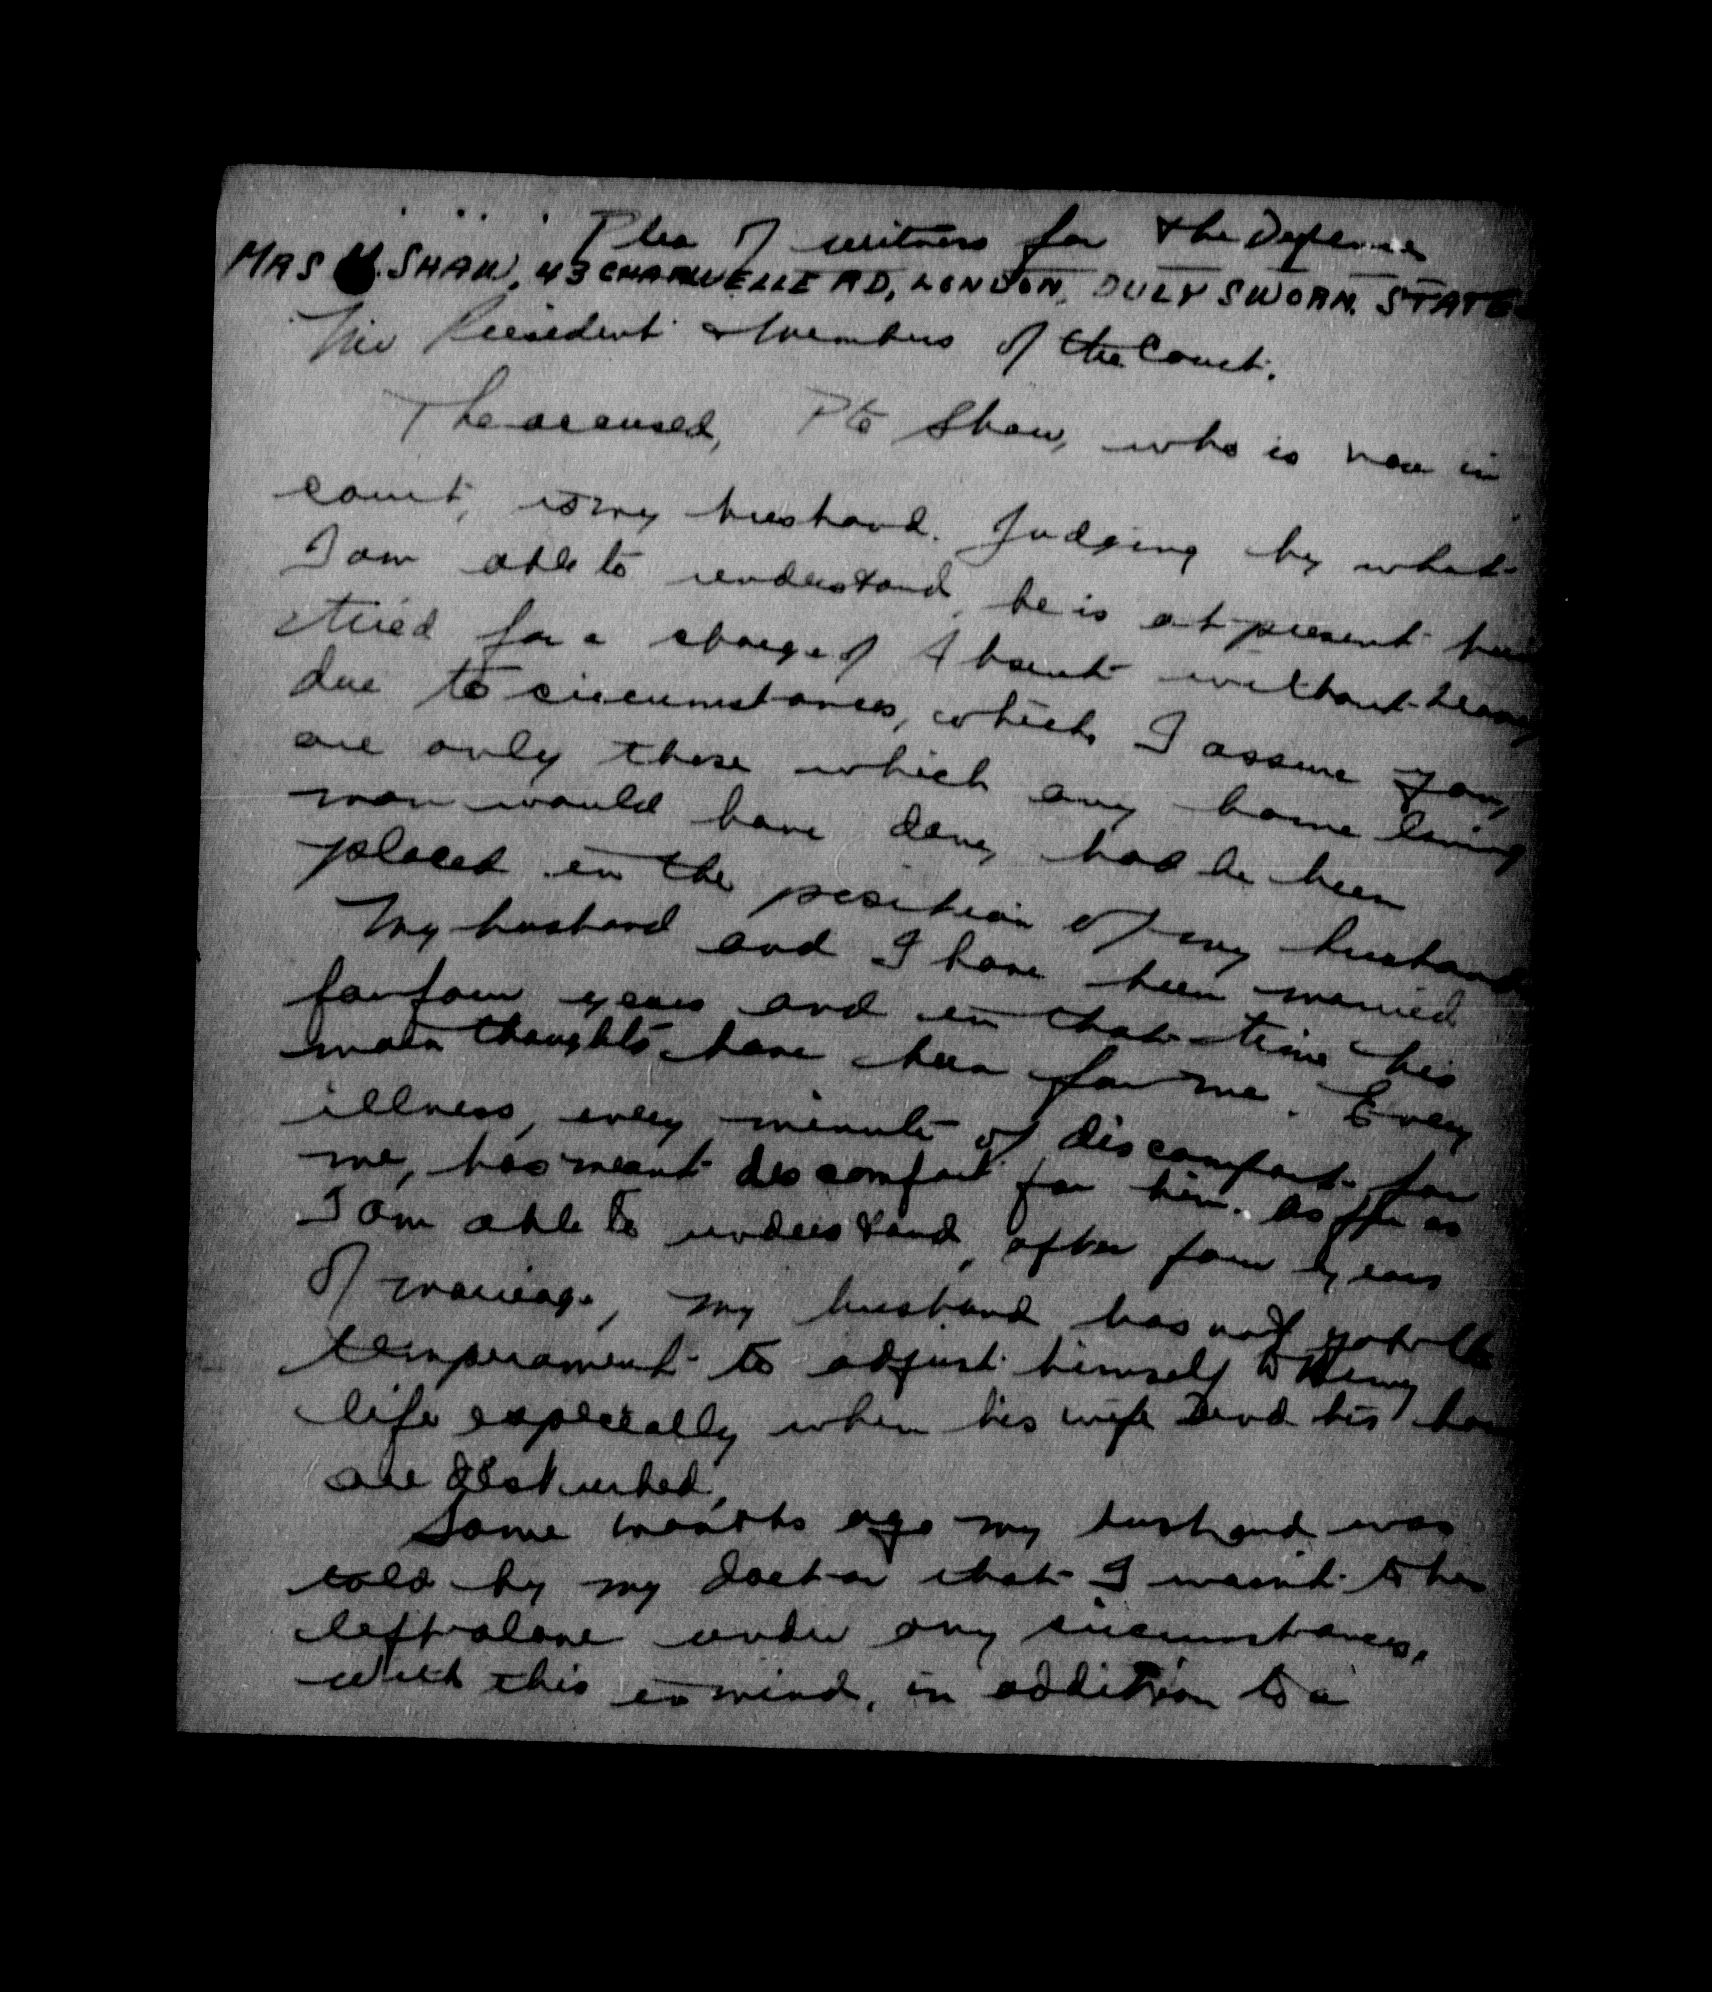 Plea of witness for the Defence
MRS M. SHAW, 43 CHARWELLE RD, LONDON, DULY SWORN. STATES
Mr President & Members of the Court.
The accused, Pte Shaw, who is now in
court, is my husband. Judging by what
I am able to understand, he is at present
tried for a charge of Absent without leave
due to circumstances, which I assure you,
are only those which any home loving
man would have done, had he been
placed in the position of my husband
My husband and I have been married
for four years and in that time his
main thoughts have been for me. Every
illness, every minute of discomfort for
me, has meant discomfort for him. As far as
I am able to understand, after four years
of marriage, my husband has not got the
temperament to adjust himself to Army
life especially when his wife and his
are disturbed.
Some months ago my husband was
told by my doctor that I wasn't to be
left alone under any circumstances.
With this in mind, in addition to a